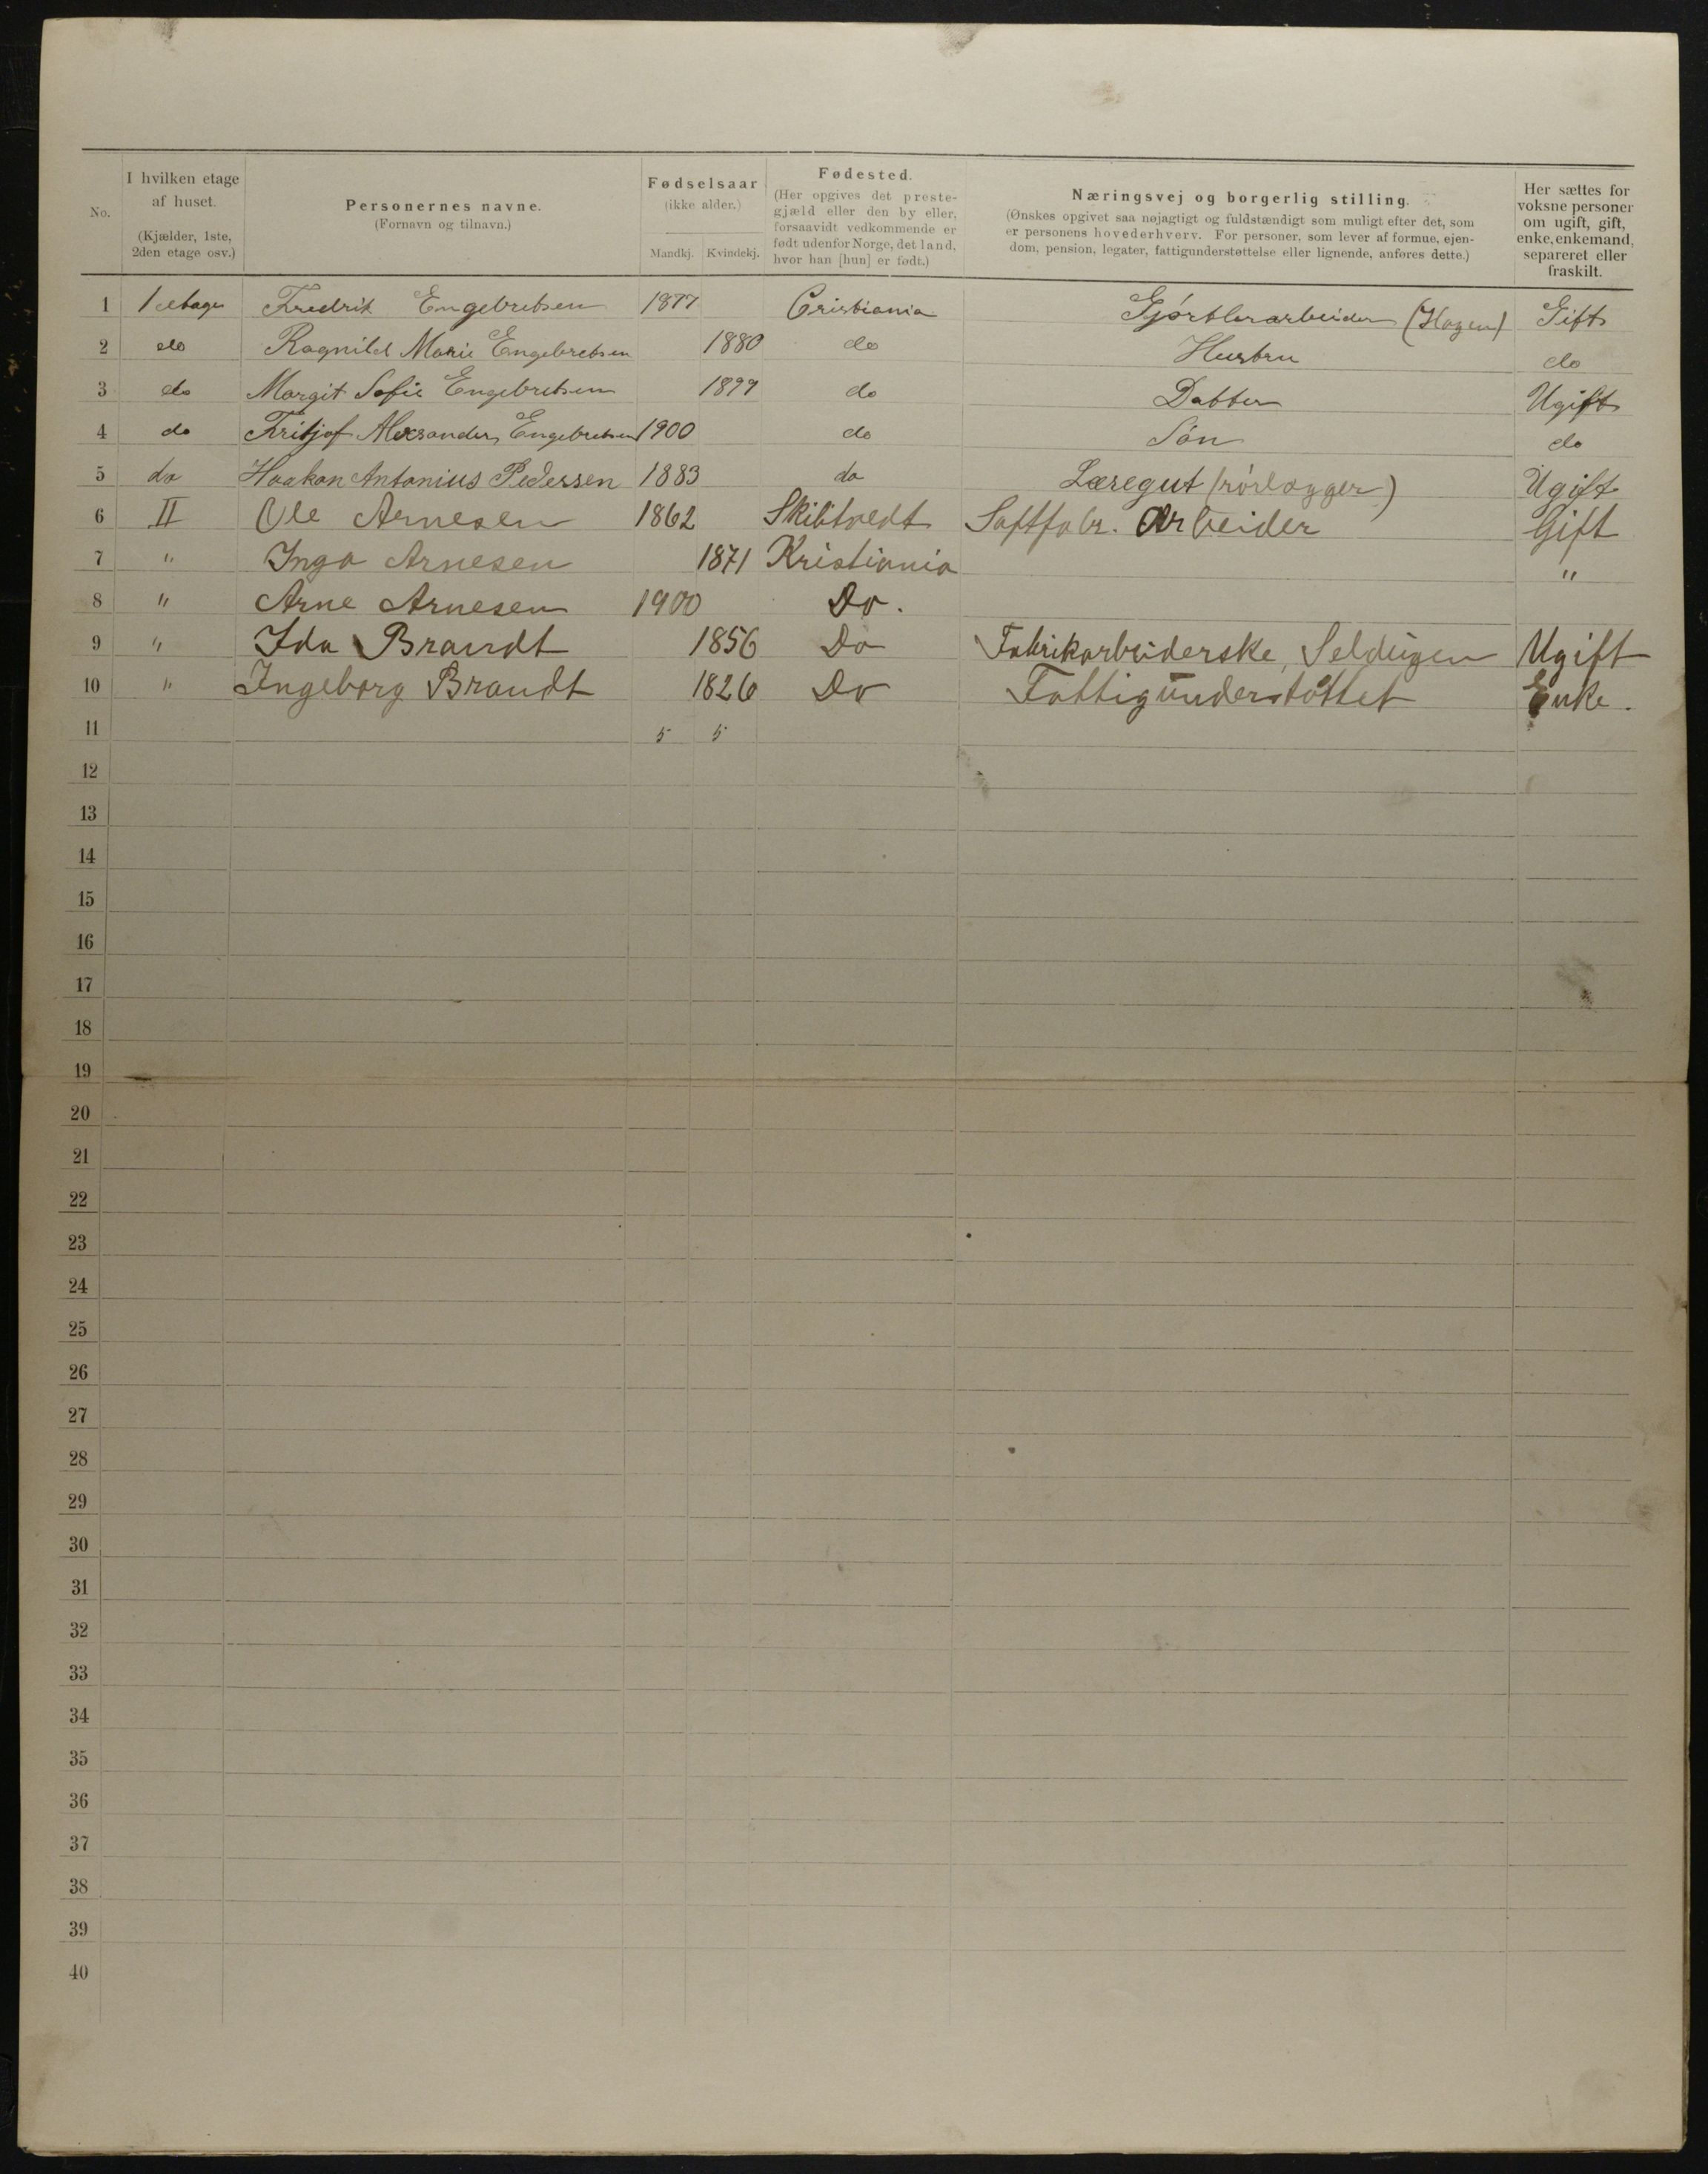 No.
I hvilken etage af huset. (Kjælder, 1ste, 2den etage osv.)
Personernes navne. (Fornavn og tilnavn.)
Fødselsaar (ikke alder.) Mandkj. Kvindekj.
Fødested. (Her opgives det præstegjæld eller den by eller, forsaavidt vedkommende er født udenfor Norge, det land, hvor han [hun] er født.)
Næringsvej og borgerlig stilling. (Ønskes opgivet saa nøjagtigt og fuldstændigt som muligt efter det, som er personens hovederhverv. For personer, som lever af formue, ejendom, pension, legater, fattigunderstøttelse eller lignende, anføres dette.)
Her sættes for voksne personer om ugift, gift, enke, enkemand, separeret eller fraskilt.
1 1 etage Fredrik Engebretsen 1877 Cristiania Gjørtlerarbeider (Hagen) Gift
2 do Ragnild Marie Engebretsen 1880 do Hustru do
3 do Margit Sofie Engebretsen 1899 do Datter Ugift
4 do Fritjof Alexsander Engebretsen 1900 do Søn do
5 do Haakon Antonius Pedersen 1883 do Læregut (rørlægger) Ugift
6 II Ole Arnesen 1862 Skibtvedt Saftfabr. Arbeider Gift
7 " Inga Arnesen 1871 Kristiania "
8 " Arne Arnesen 1900 Do.
9 " Ida Brandt 1856 Do Fabrikarbeiderske, Seldugen Ugift
10 " Ingeborg Brandt 1826 Do Fattigunderstøttet Enke.
11 5 5
12
13
14
15
16
17
18
19
20
21
22
23
24
25
26
27
28
29
30
31
32
33
34
35
36
37
38
39
40